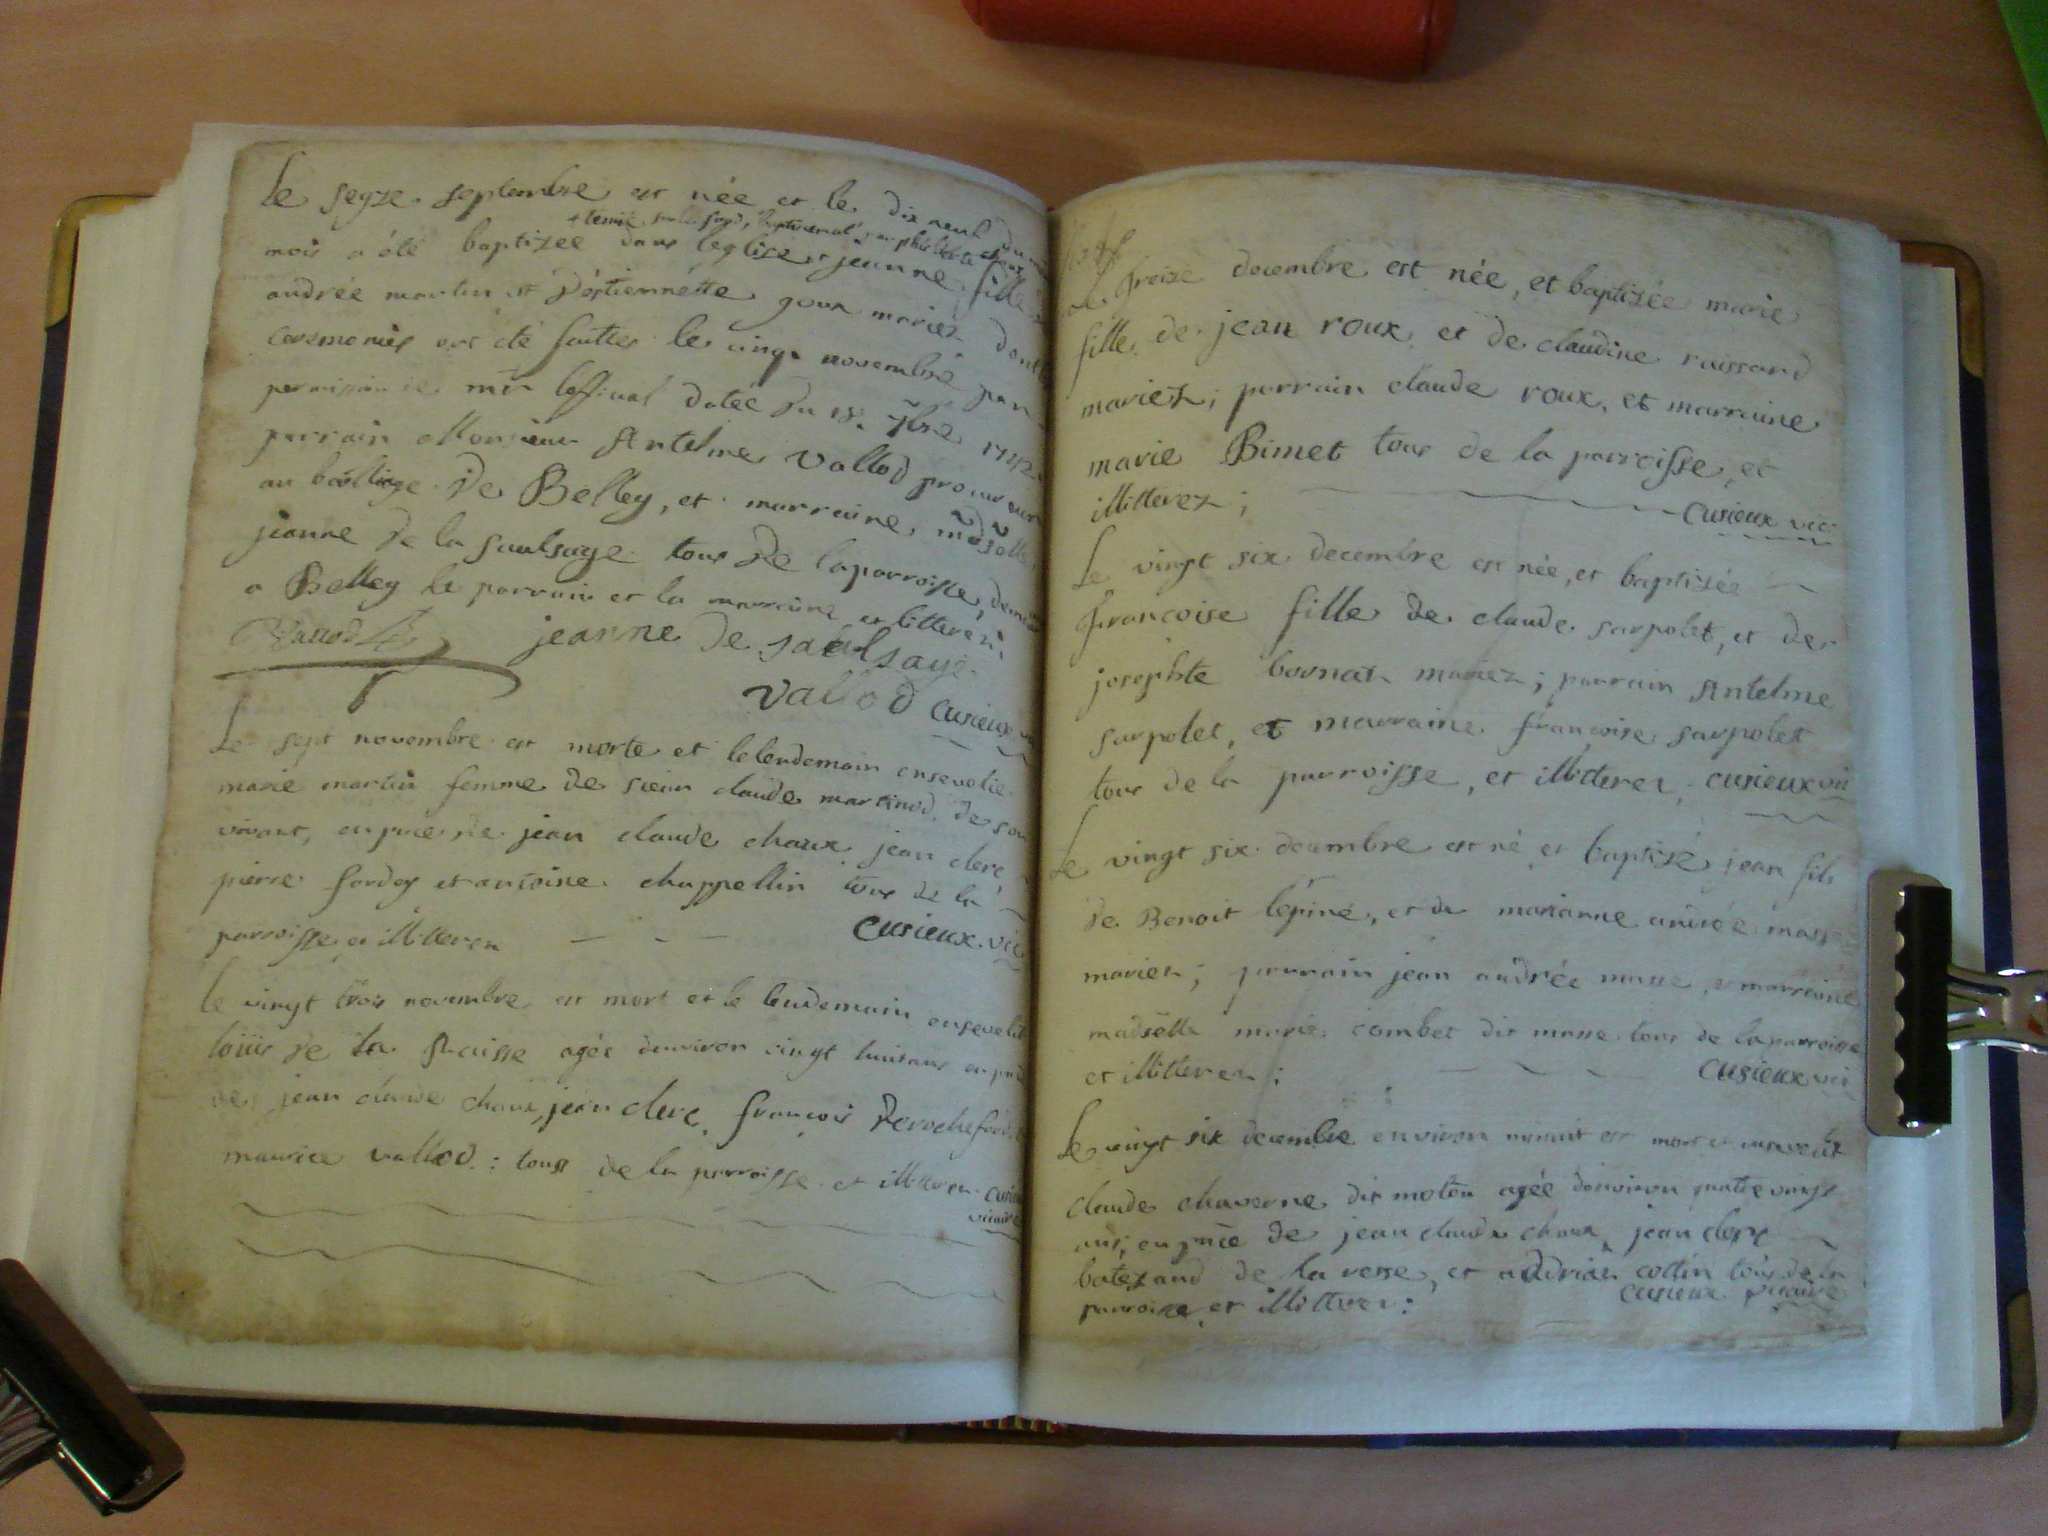 Le seyze septembre est née et le dix neuf du
+ tenüe sur les fonds, par
mois a été baptizée dans leglise + jeanne fille
andrée martin et d'estiennétte goux mariez dont
ceremonies ont été faittes le cinq novembre par
permission de mr lofficial datée du 18. 7bre 1742
parrain Monsieur Antelme Vallod procureur
au bailliage De Belley, et marraine, madselle
jeanne De la saulsaye tous De laparroisse,
a Belley le parrain et la marraine et litterez;
Vallod jeanne de saulsaye
vallod cusieux
Le sept novembre est morte et lelendemain ensevelie
marie martin femme de sieur claude martinod, de son
vivant, en pnce de jean claude chaux jean clerc
pierre fordey et antoine chappellin tous de la
parroisse et illitterez
cusieux vic
le vingt trois novembre est mort et le lendemain ensevelit
loüis de la fraisse agée denviron vingt huit ans en pnce
de jean claude chaux, jean clerc, françois Derochefort
maurice vallod : tous de la parroisse et illitterez cusieux
vicaire
Le treize decembre est née, et baptizée marie
fille de jean roux et de claudine ruissard
mariez; parrain claude roux, et marraine
marie Bimet tous de la parroisse, et
illitterez ; cusieux vic
Le vingt six decembre est née, et baptizée
françoise fille de claude sarpolet, et de
josephte bornat mariez; parrain Antelme
sarpolet, et marraine françoise sarpolet
tous de la parroisse, et illitterez, cusieux vic
Le vingt six decembre est né et baptizé jean fils
de Benoit lépine, et de marianne andrée masse
mariez; parrain jean andrée masse, et marraine
madselle marie combet dit masse tous de laparroisse
et illitterez ; cusieux vic
Le vingt six decembre environ minuit est mort et ensevelit
claude chaverne dit moteu agée denviron quatre vingt
ans, en pnce de jean claude chaux, jean clerc
batezard de la verse, et addrien collin tous de la
parroisse et illitterez: cusieux vicaire